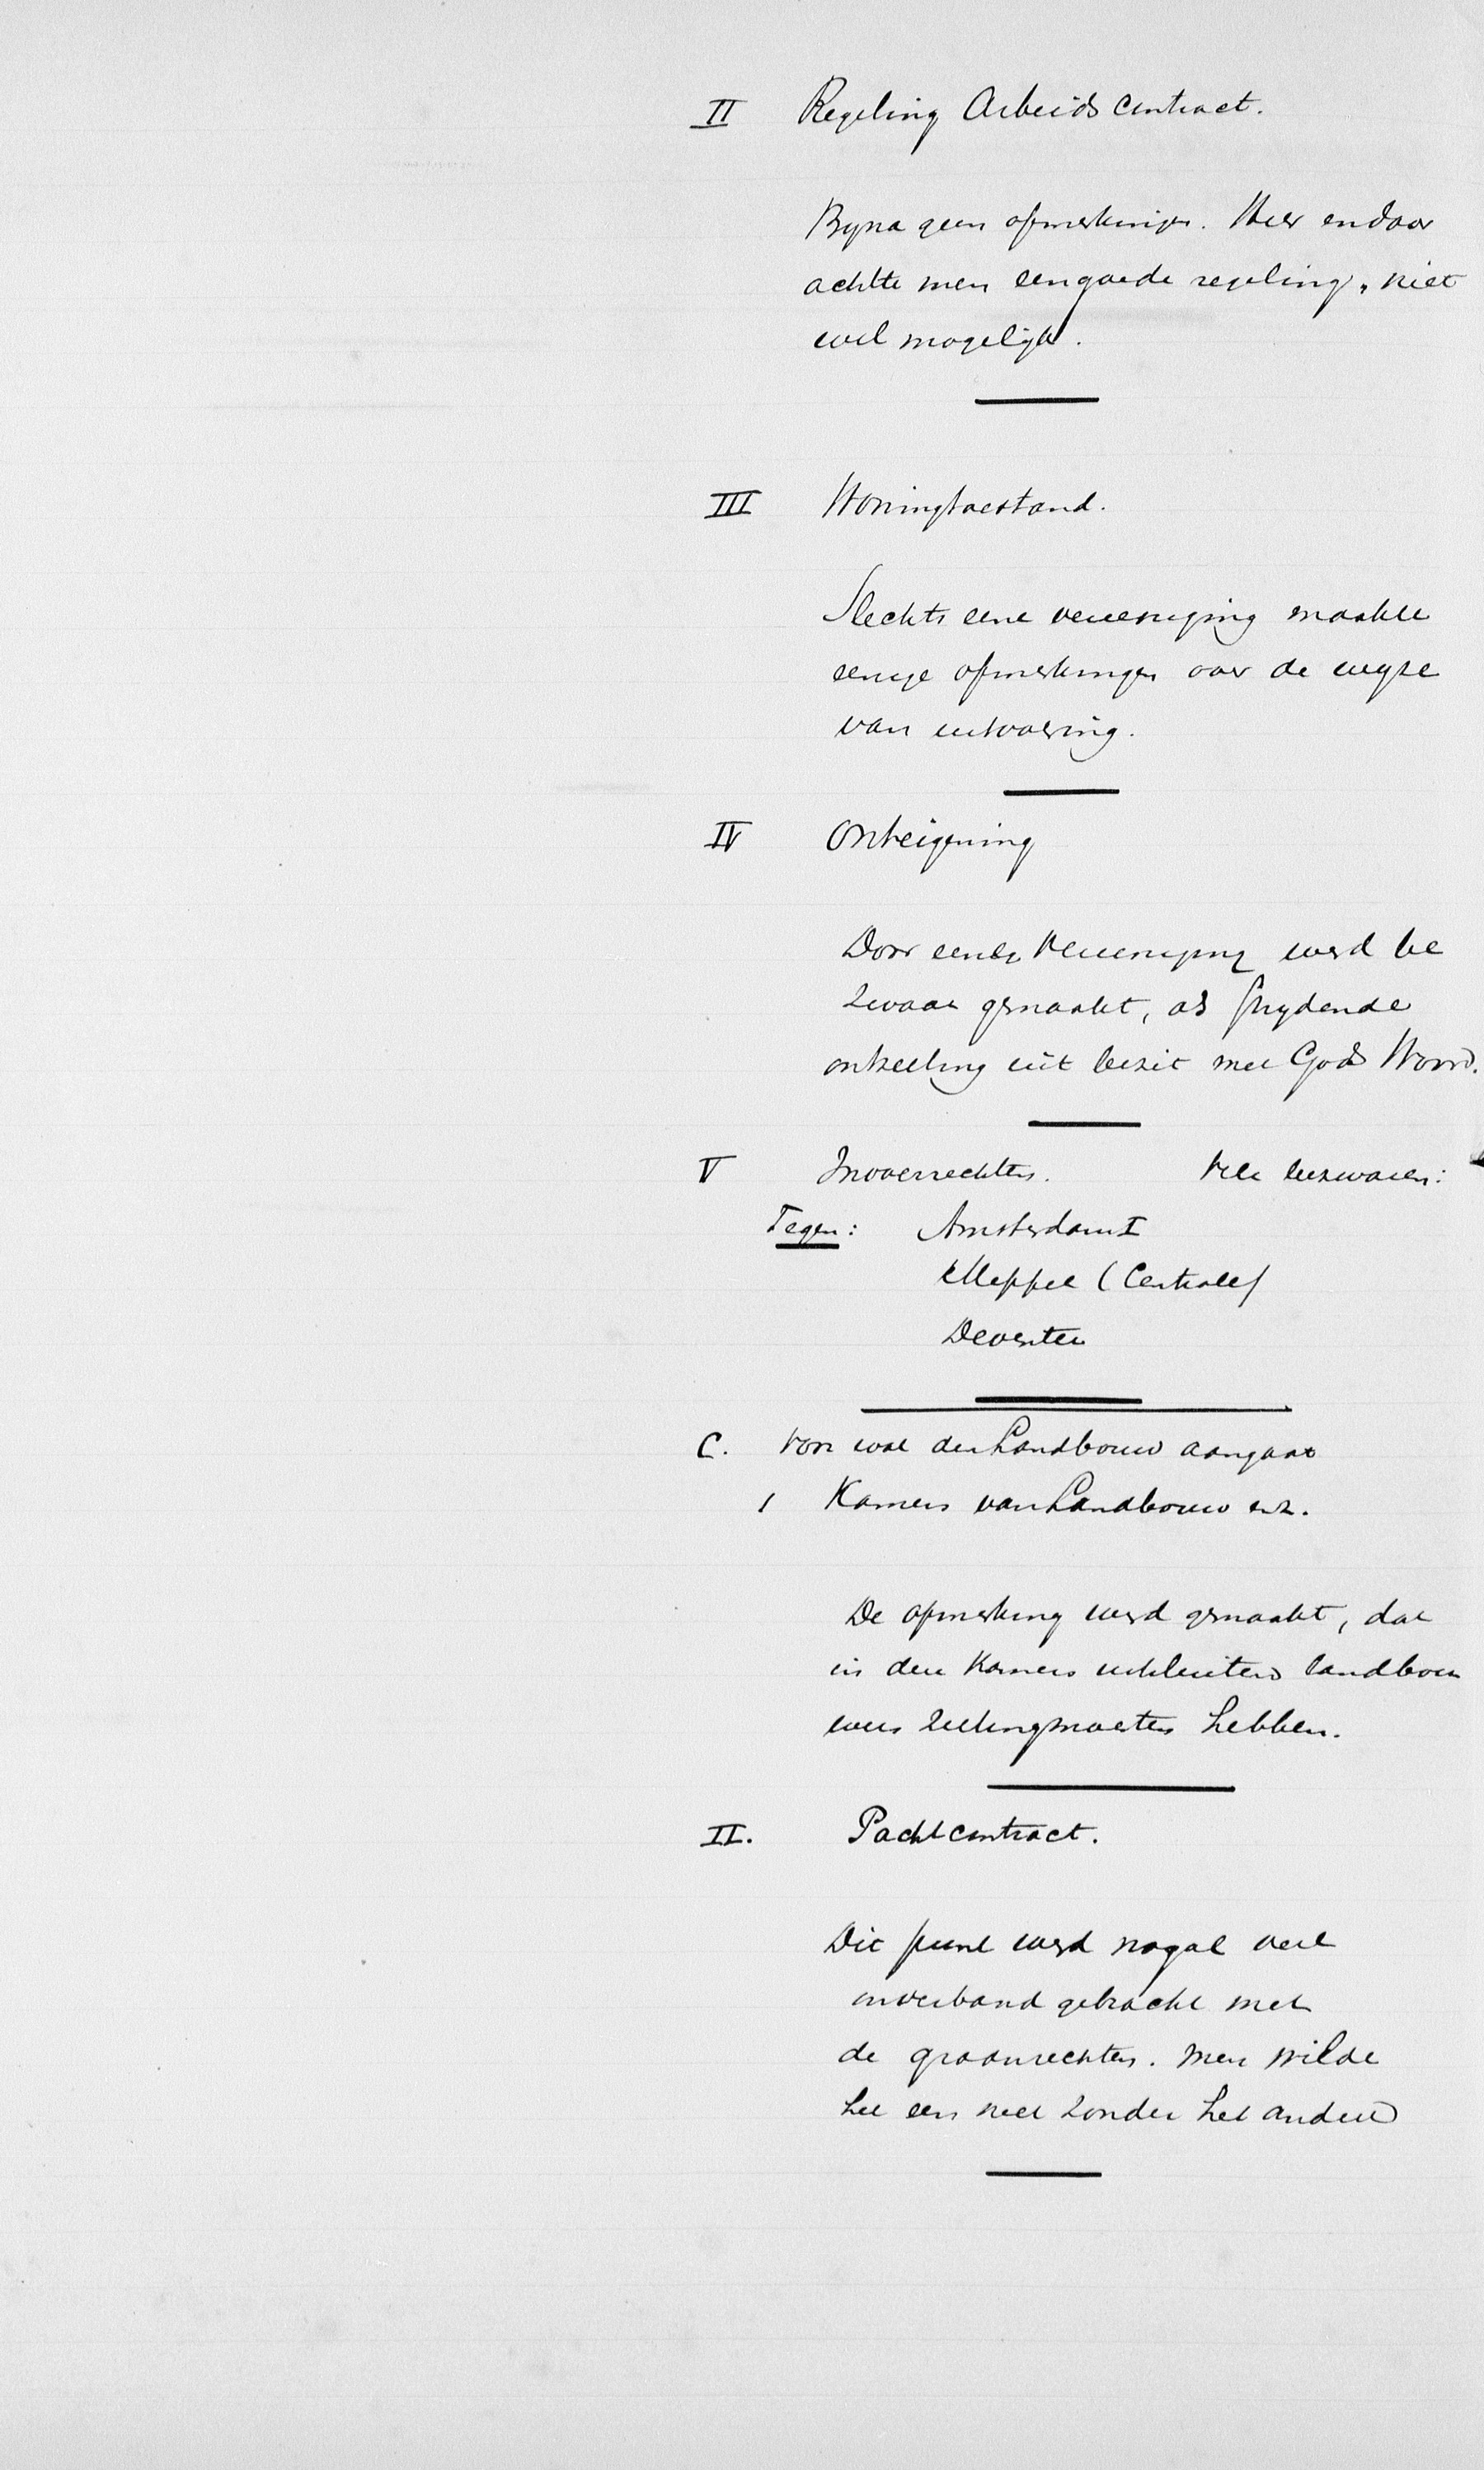 II Regeling Arbeidscontract.
Byna geen opmerkingen. Hier en daar
achtte men een goede regeling, niet
wel mogelijk.
III Woningtoestand.
Slechts eene vereeniging maakte
eenige opmerkingen over de wyze
van uitvoering.
IV Onteigening
Door eene vereeniging werd be
zwaar gemaakt, als strydende
ontzetting uit bezit met Gods Woord.
V Invoerrechten. Vele bezwaren:
Tegen: Amsterdam I
Meppel (Centrale)
Deventer
C. Voor wat den Landbouw aangaat
1 Kamers van Landbouw enz.
De opmerking werd gemaakt, dat
in den Kamers uitsluitend landbou
wers zitting moesten hebben.
II. Pachtcontract.
Dit punt werd nogal veel
in verband gebracht met
de graanrechten. Men wilde
het een niet zonder het andere